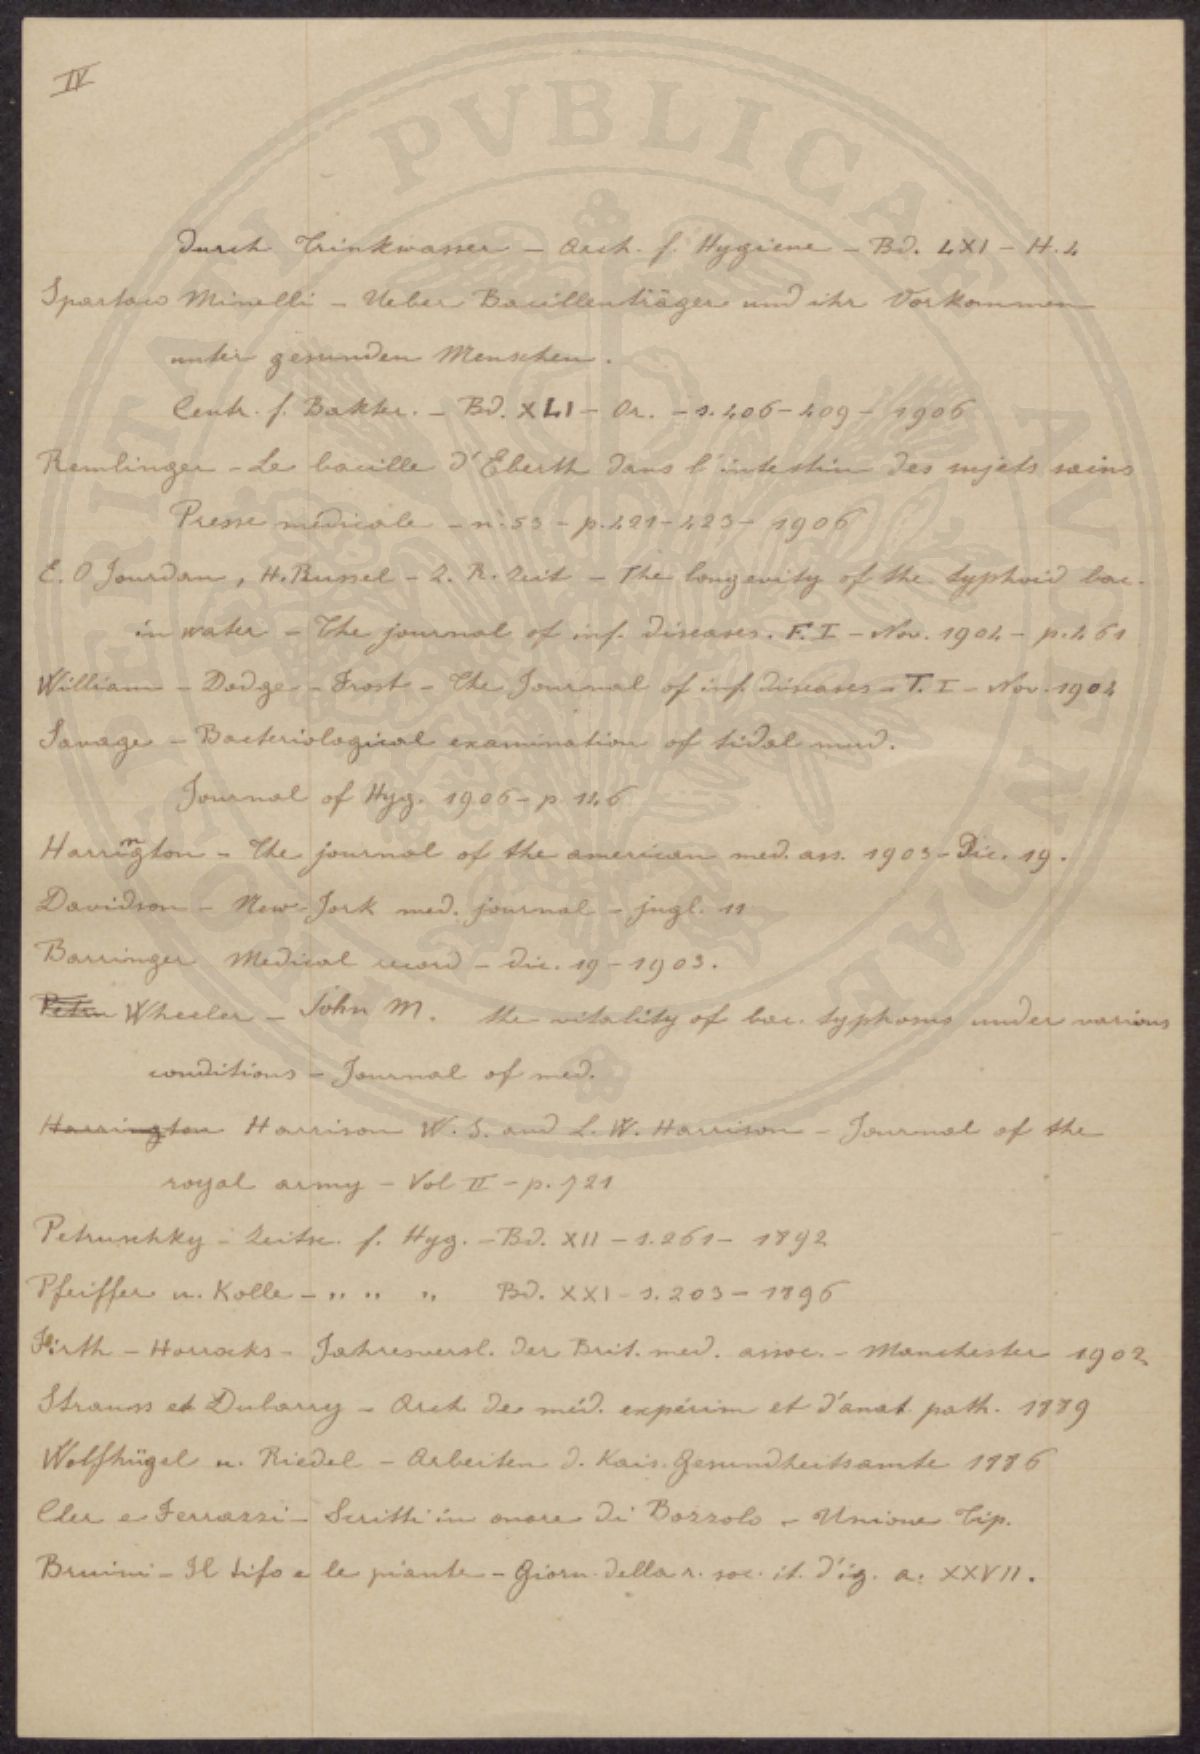 IV
durch Trinkwasser – Arch. f. Hygiene – Bd. LXI – H. 4
Spartaco Minelli – Ueber Bacillenträger und ihr Vorkommen
unter gesunden Menschen.
Centr. f. Bakter. – Bd. XLI – Or. – s. 406–409 – 1906
Remlinger – Le bacille d'Eberth dans l'intestin des sujets sains
Presse médicale – n. 53 – p. 421–423 – 1906
E. O Jourdan, H. Russel – Z. R. Zeit – The longevity of the typhoid bac.
in water – The journal of inf. diseases. F. I – Nov. 1904 – p. 461
William – Dodge – Frost – The Journal of inf. diseases – T. I – Nov. 1904
Savage – Bacteriological examination of tidal mud.
Journal of Hyg. 1906 – p. 146
Harrington – The journal of the american med. ass. 1903 – Dic. 19.
Davidson – New-Jork med. journal – jugl. 11
Barringer Medical record – dic. 19 – 1903.
Petru Wheeler – John M. the vitality of bac. typhosus under various
conditions – Journal of med.
Harrington Harrison W. S. and L. W. Harrison – Journal of the
royal army – Vol II – p. 721
Petruschky – Zeitsc. f. Hyg. – Bd. XII – s. 261 – 1892
Pfeiffer u. Kolle – " " " Bd. XXI – s. 203 – 1896
Firth – Horrocks – Jahresversl. der Brit. med. assoc. – Manchester 1902
Strauss et Dubarry – Arch de méd. expérim et d'anat. path. 1889
Wolfhügel u. Riedel – Arbeiten d. Kais. Gesundheitsamte 1886
Cler e Ferrazzi – Scritti in onore di Bozzolo – Unione Tip.
Bruini – Il tifo e le piante – Giorn. della r. soc. it. d'ig. a. XXVII.